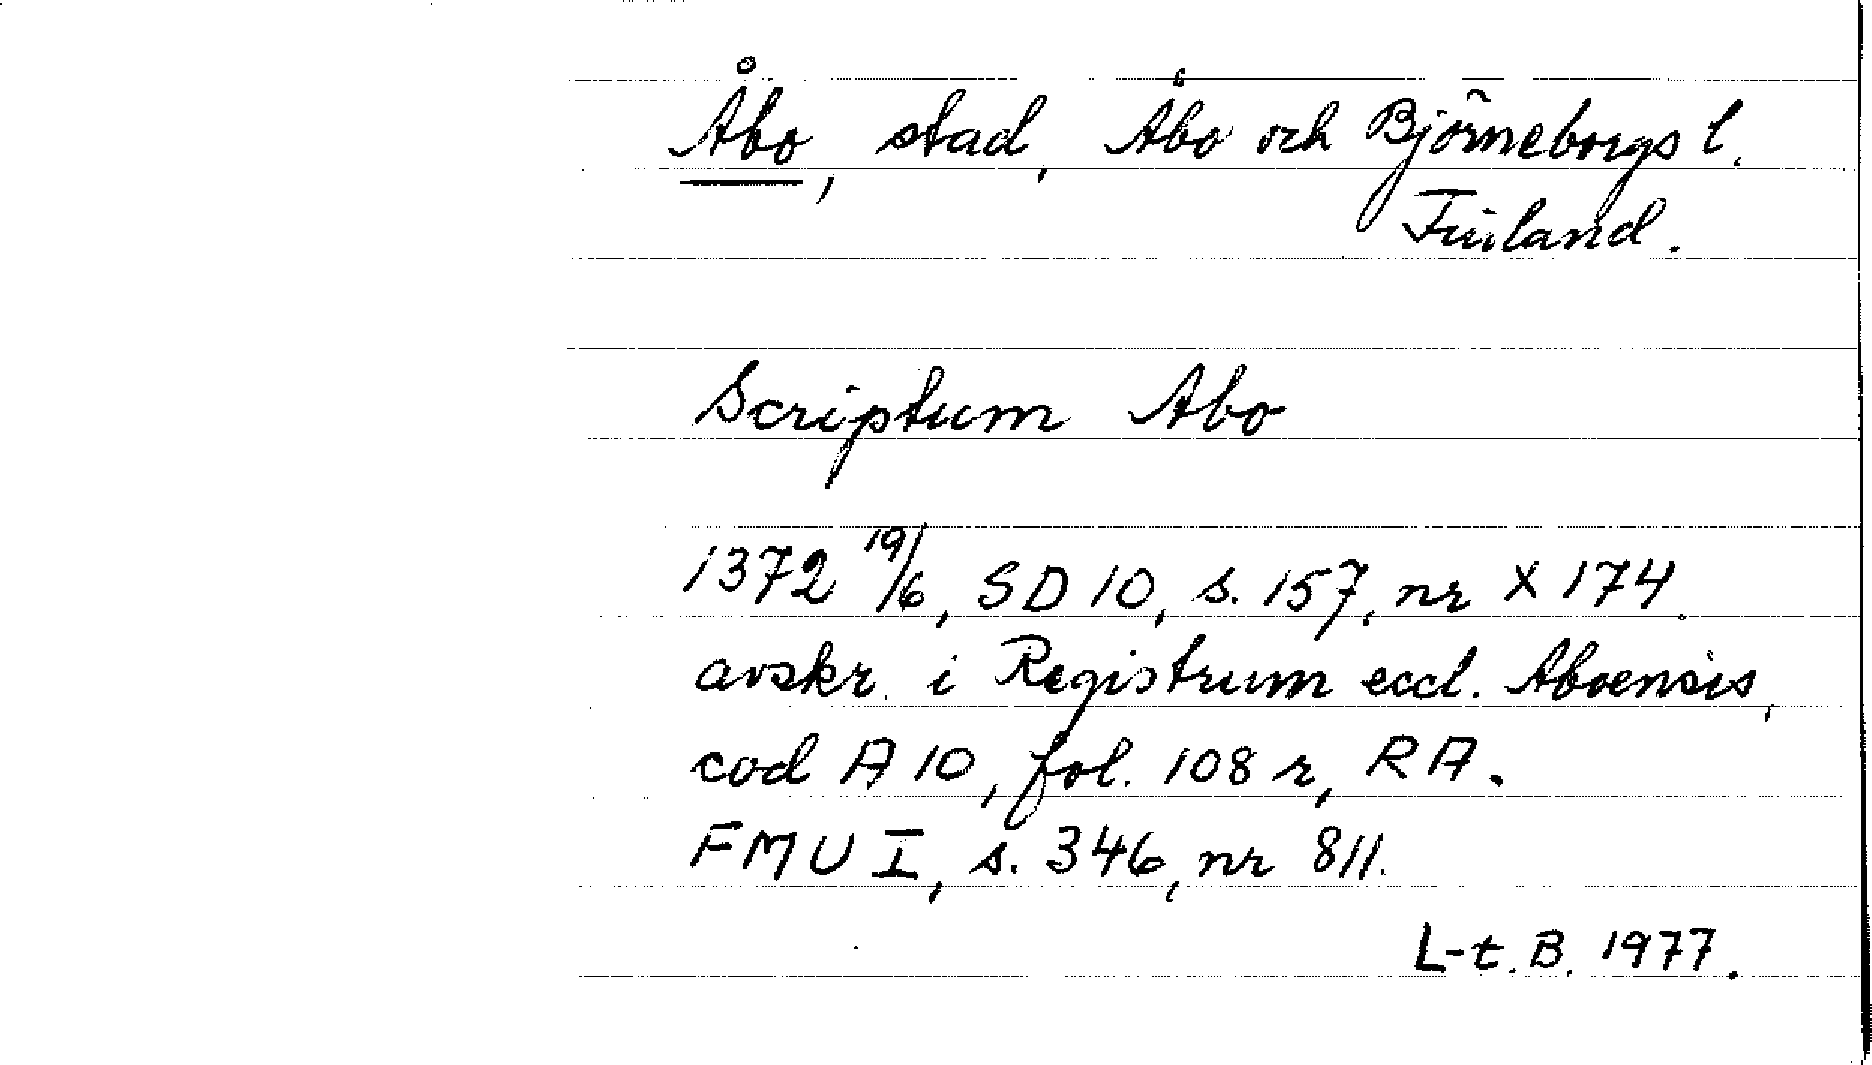 Åbo, stad, Åbo och Björneborgs l.
Finland.
Scriptum Abo
1372 19/6, SD 10, s. 157, nr X 174.
avskr. i Registrum eccl. Aboensis,
cod A 10, fol. 108 r, RA.
FMU I, s. 346, nr 811.
L-t. B. 1977.